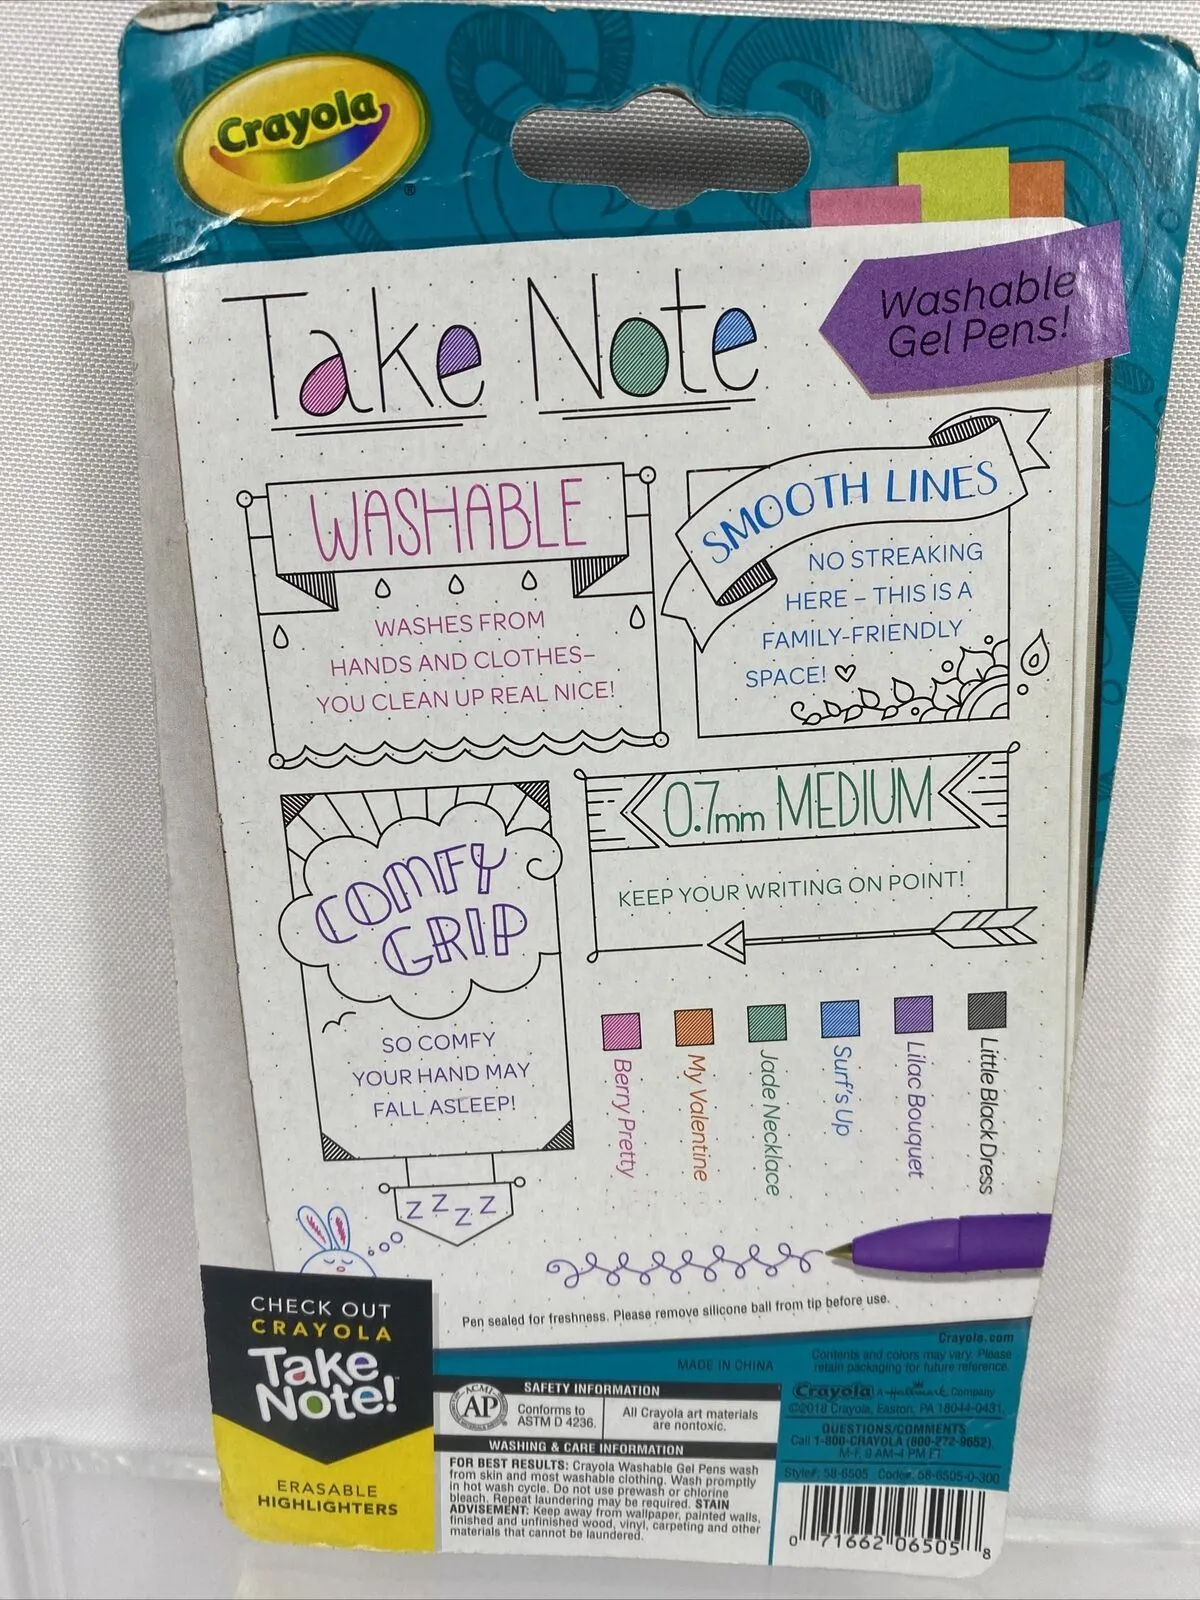 Crayola
®
Take Note
Washable
Gel Pens!
WASHABLE
WASHES FROM
HANDS AND CLOTHES–
YOU CLEAN UP REAL NICE!
SMOOTH LINES
NO STREAKING
HERE – THIS IS A
FAMILY-FRIENDLY
SPACE!
COMFY
GRIP
SO COMFY
YOUR HAND MAY
FALL ASLEEP!
Z Z Z Z
0.7mm MEDIUM
KEEP YOUR WRITING ON POINT!
Berry Pretty
My Valentine
Jade Necklace
Surf's Up
Lilac Bouquet
Little Black Dress
Pen sealed for freshness. Please remove silicone ball from tip before use.
CHECK OUT
CRAYOLA
Take
Note!
ERASABLE
HIGHLIGHTERS
MADE IN CHINA
SAFETY INFORMATION
ACMI
AP
Conforms to
ASTM D 4236.
All Crayola art materials
are nontoxic.
WASHING & CARE INFORMATION
FOR BEST RESULTS: Crayola Washable Gel Pens wash
from skin and most washable clothing. Wash promptly
in hot wash cycle. Do not use prewash or chlorine
bleach. Repeat laundering may be required. STAIN
ADVISEMENT: Keep away from wallpaper, painted walls,
finished and unfinished wood, vinyl, carpeting and other
materials that cannot be laundered.
Crayola.com
Contents and colors may vary. Please
retain packaging for future reference.
Crayola A Hallmark Company
©2018 Crayola, Easton, PA 18044-0431.
QUESTIONS/COMMENTS
Call 1-800-CRAYOLA (800-272-9652),
M-F, 9 AM-4 PM ET.
Style#: 58-6505 Code#: 58-6505-0-300
0 71662 06505 8